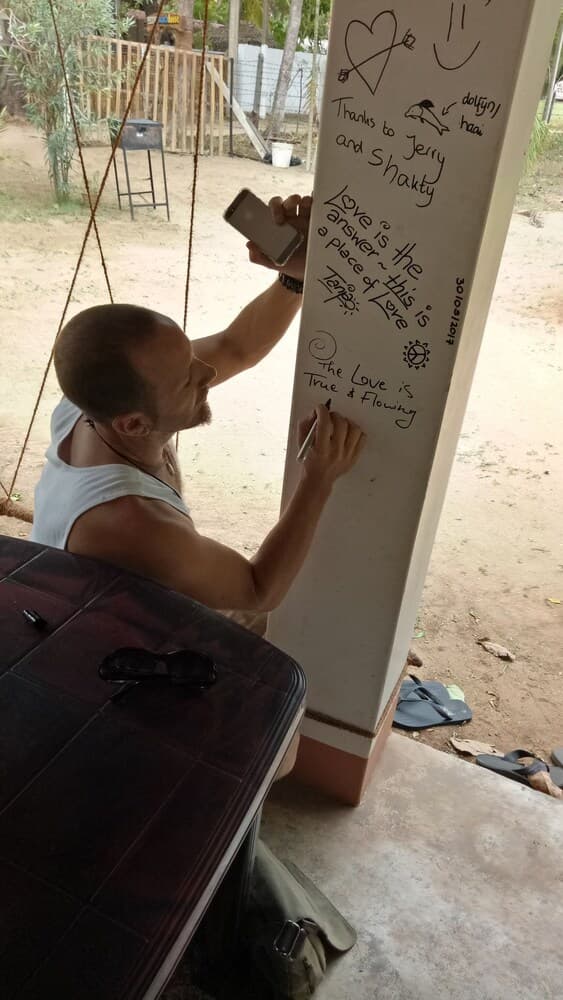 dolfijn/
haai
Thanks to Jerry
and Shakty
Love is the
answer ~ this is
a place of Love
30/03/2017
The Love is
True & Flowing